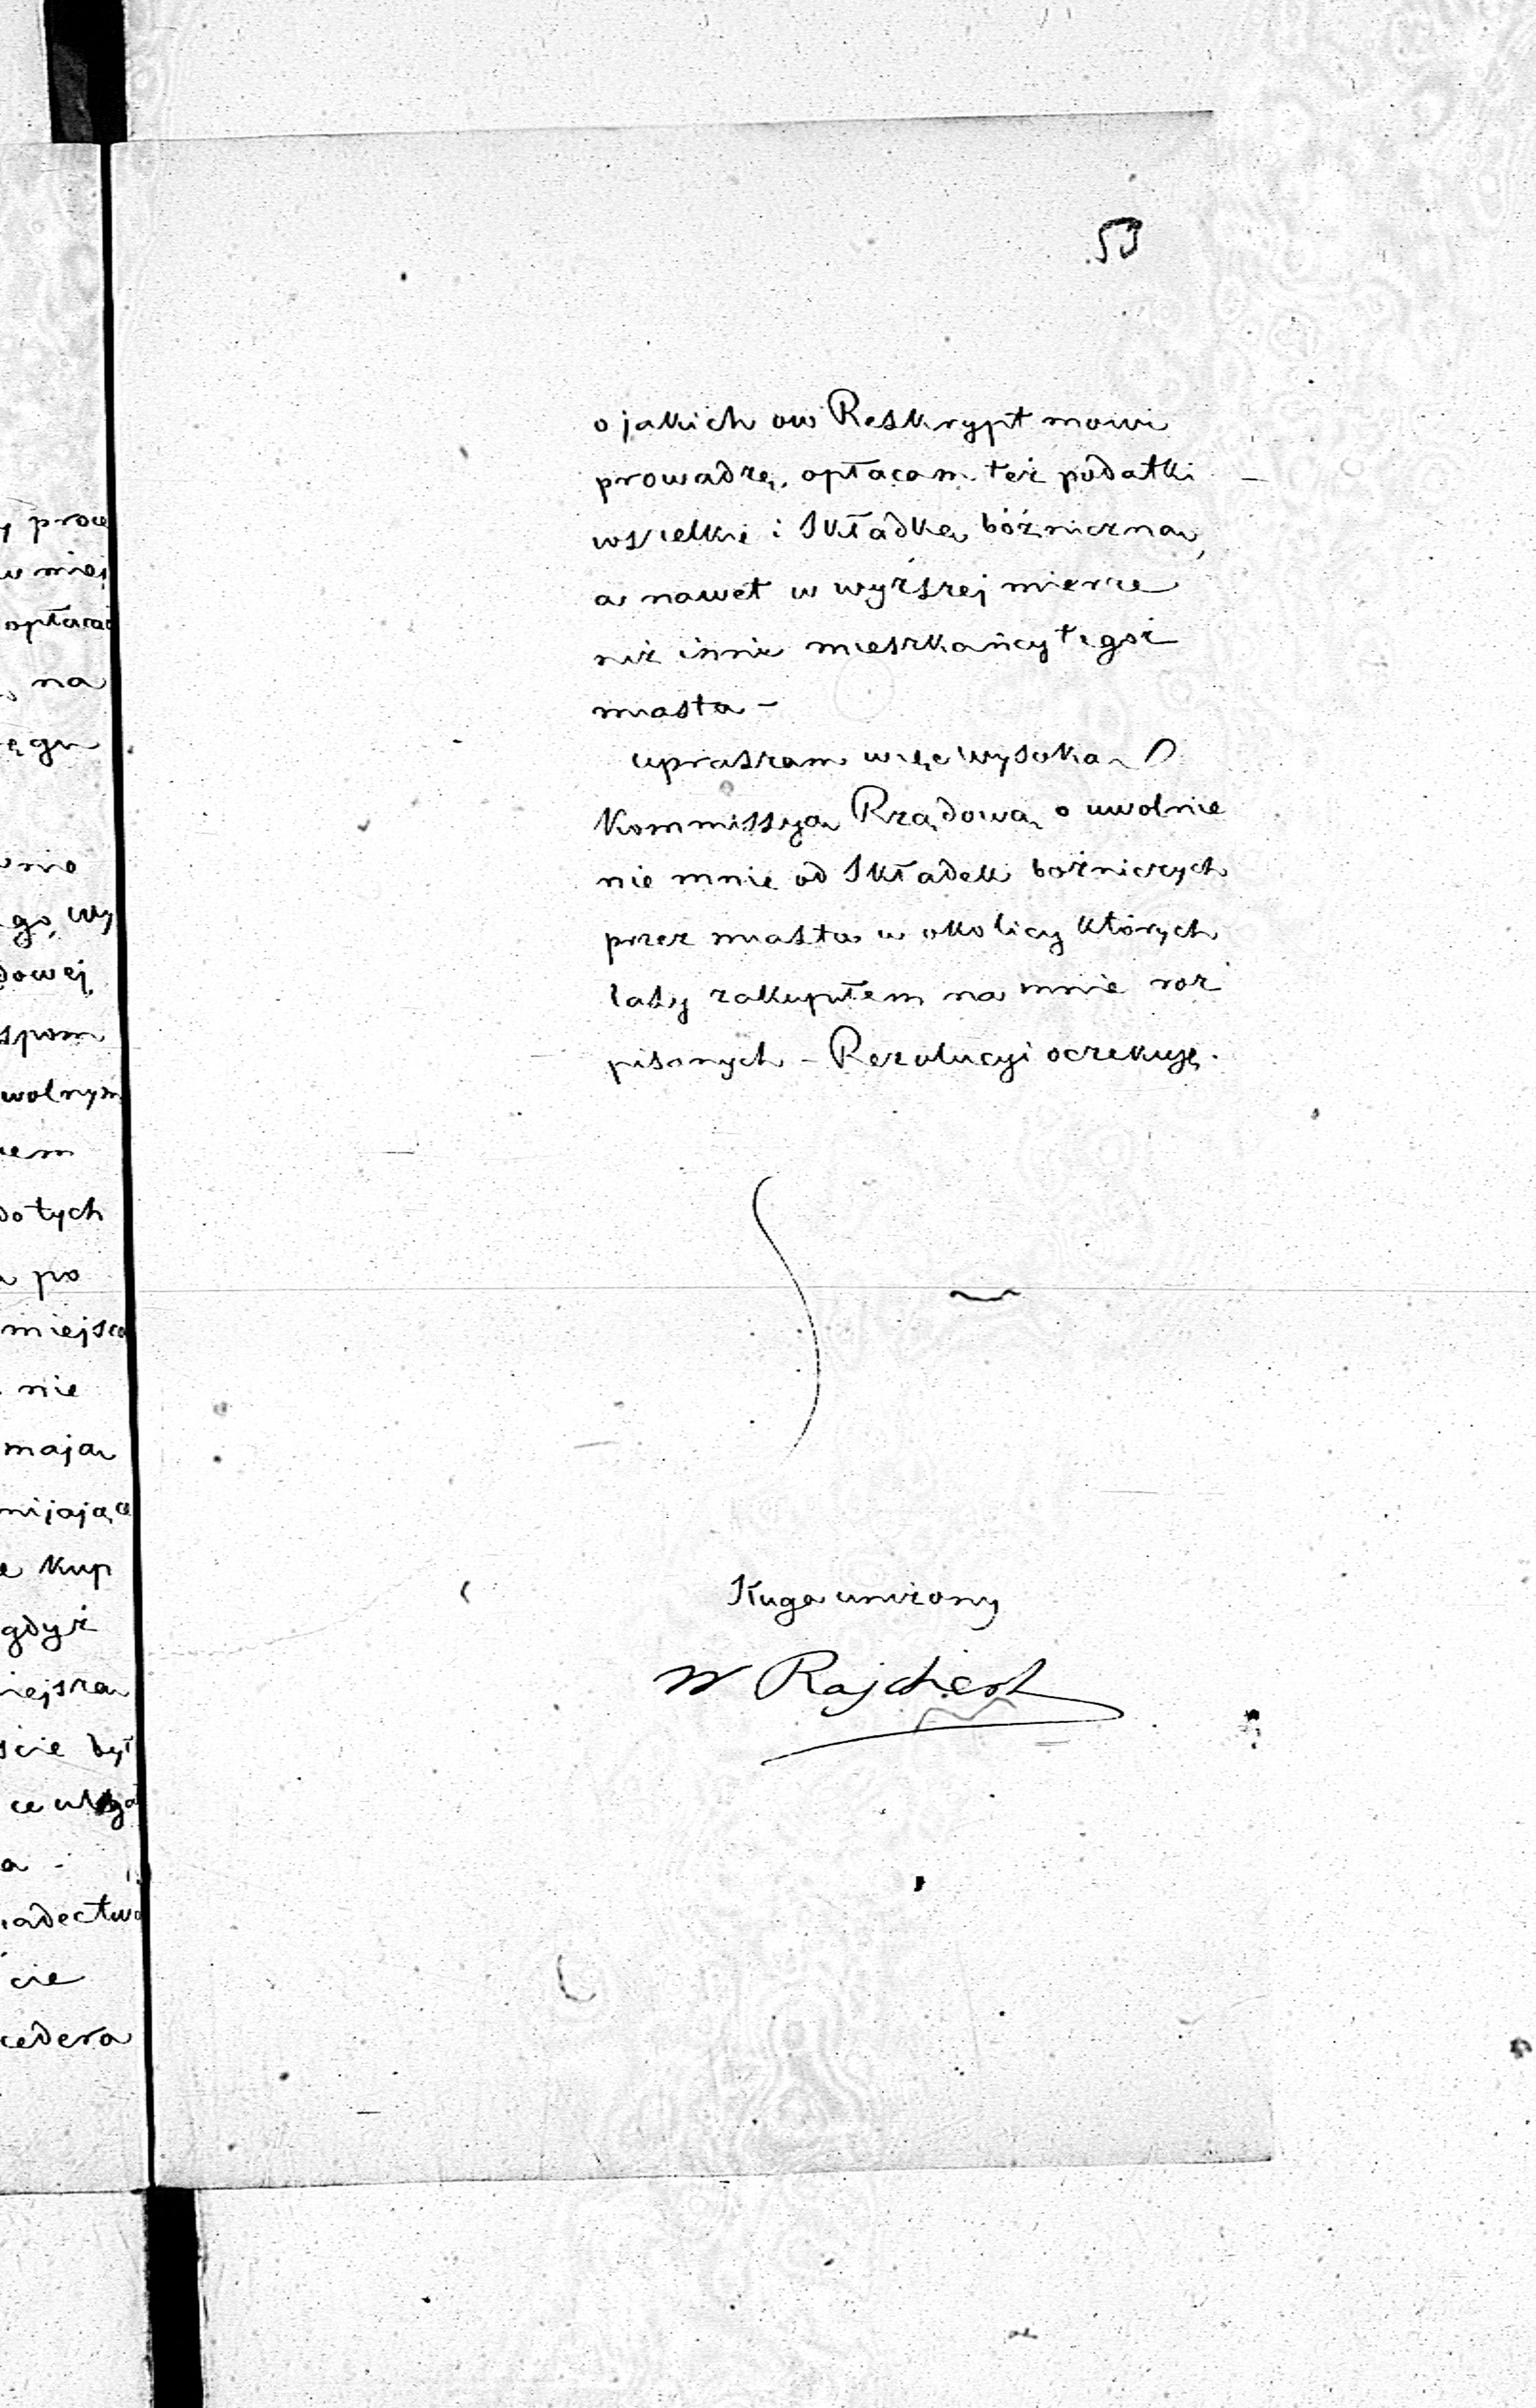 53
o jakich ow Reskrypt mowi
prowadzę, opłacam też podatki
wszelkie i Składkę bóźniczną,
a nawet w wyższej mierze
niż inni mieszkańcy tegoż
miasta –
upraszam więc wysoką
Kommissyą Rządową o uwolnie
nie mnie od Składek bożniczych
przez miasta w okolicy których
lasy zakupiłem na mnie roz
pisanych – Rezolucyi oczekuję.
Sługa uniżony
W Rajchert
y proce
w miej
opłacać
na
ęgu
wno
go, wy
dowej
spom
wolnym
iem
do tych
po
miejsca
nie
mają
mijając
e kup
gdyż
iejsza
ście był
a -
iadectwo
cie
cedera